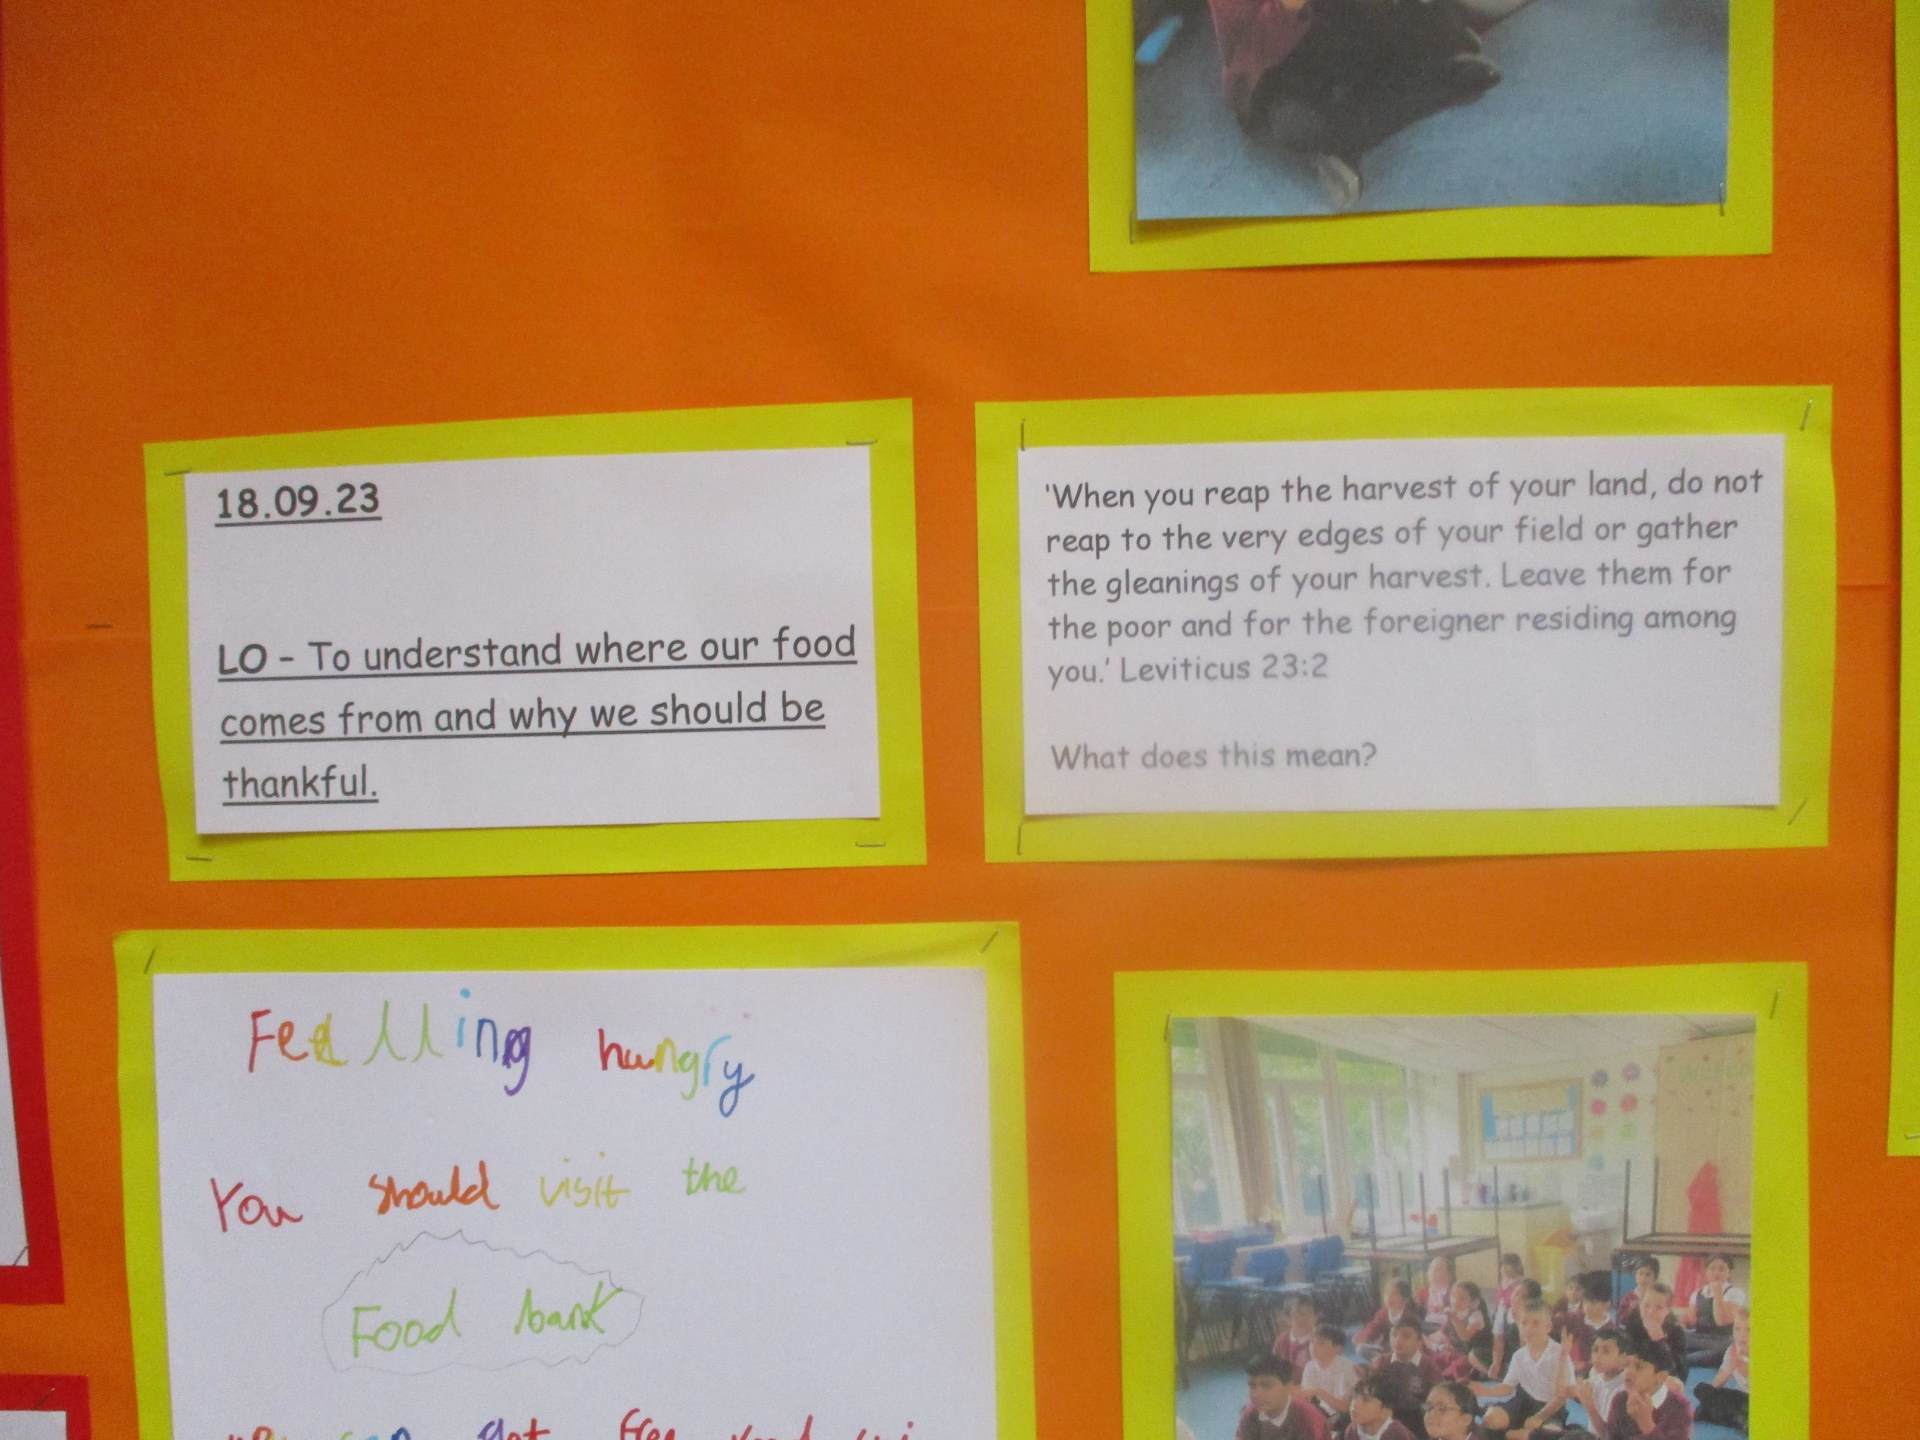 18.09.23
LO - To understand where our food
comes from and why we should be
thankful.
'When you reap the harvest of your land, do not
reap to the very edges of your field or gather
the gleanings of your harvest. Leave them for
the poor and for the foreigner residing among
you.' Leviticus 23:2
What does this mean?
Feelling hungry
You should visit the
Food bank